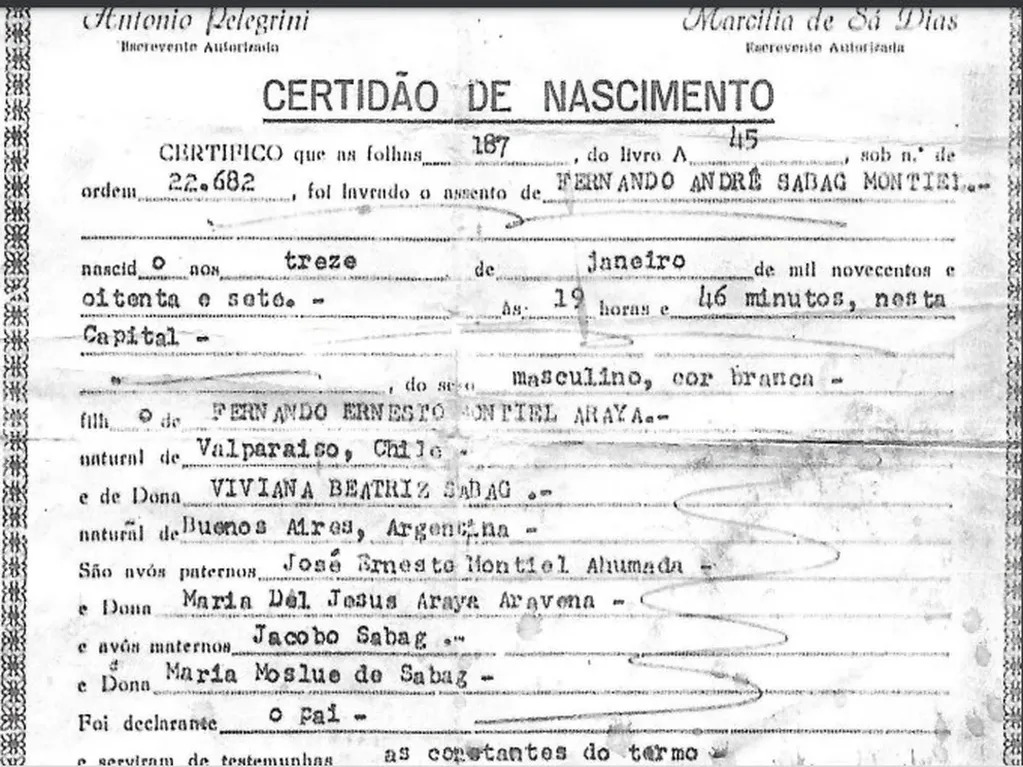 Antonio Pelegrini Marcilia de Sá Dias
Escrevente Autorizada Escrevente Autorizada
CERTIDÃO DE NASCIMENTO
CERTIFICO que as folhas 187, do livro A 45, sob n.º de
ordem 22.682, foi lavrado o assento de FERNANDO ANDRÉ SABAG MONTIEL.-
nascid o aos treze de janeiro de mil novecentos e
oitenta e sete. - às 19 horas e 46 minutos, nesta
Capital -
, do sexo masculino, cor branca -
filh o de FERNANDO ERNESTO MONTIEL ARAYA.-
natural de Valparaiso, Chile -
e de Dona VIVIANA BEATRIZ SABAG .-
natural de Buenos Aires, Argentina -
São avós paternos José Ernesto Montiel Ahumada -
e Dona Maria Del Jesus Araya Aravena -
e avós maternos Jacobo Sabag .-
e Dona Maria Moslue de Sabag -
Foi declarante o pai -
e serviram de testemunhas as constantes do termo -